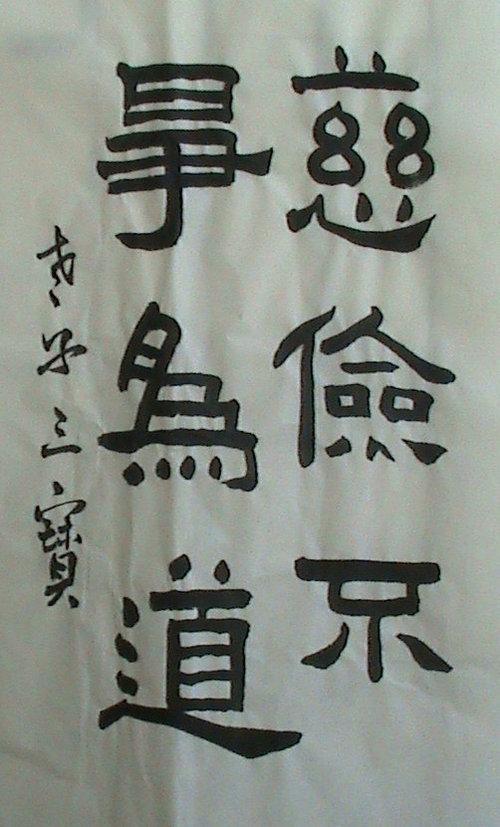 慈儉不
事為道
老子三寶